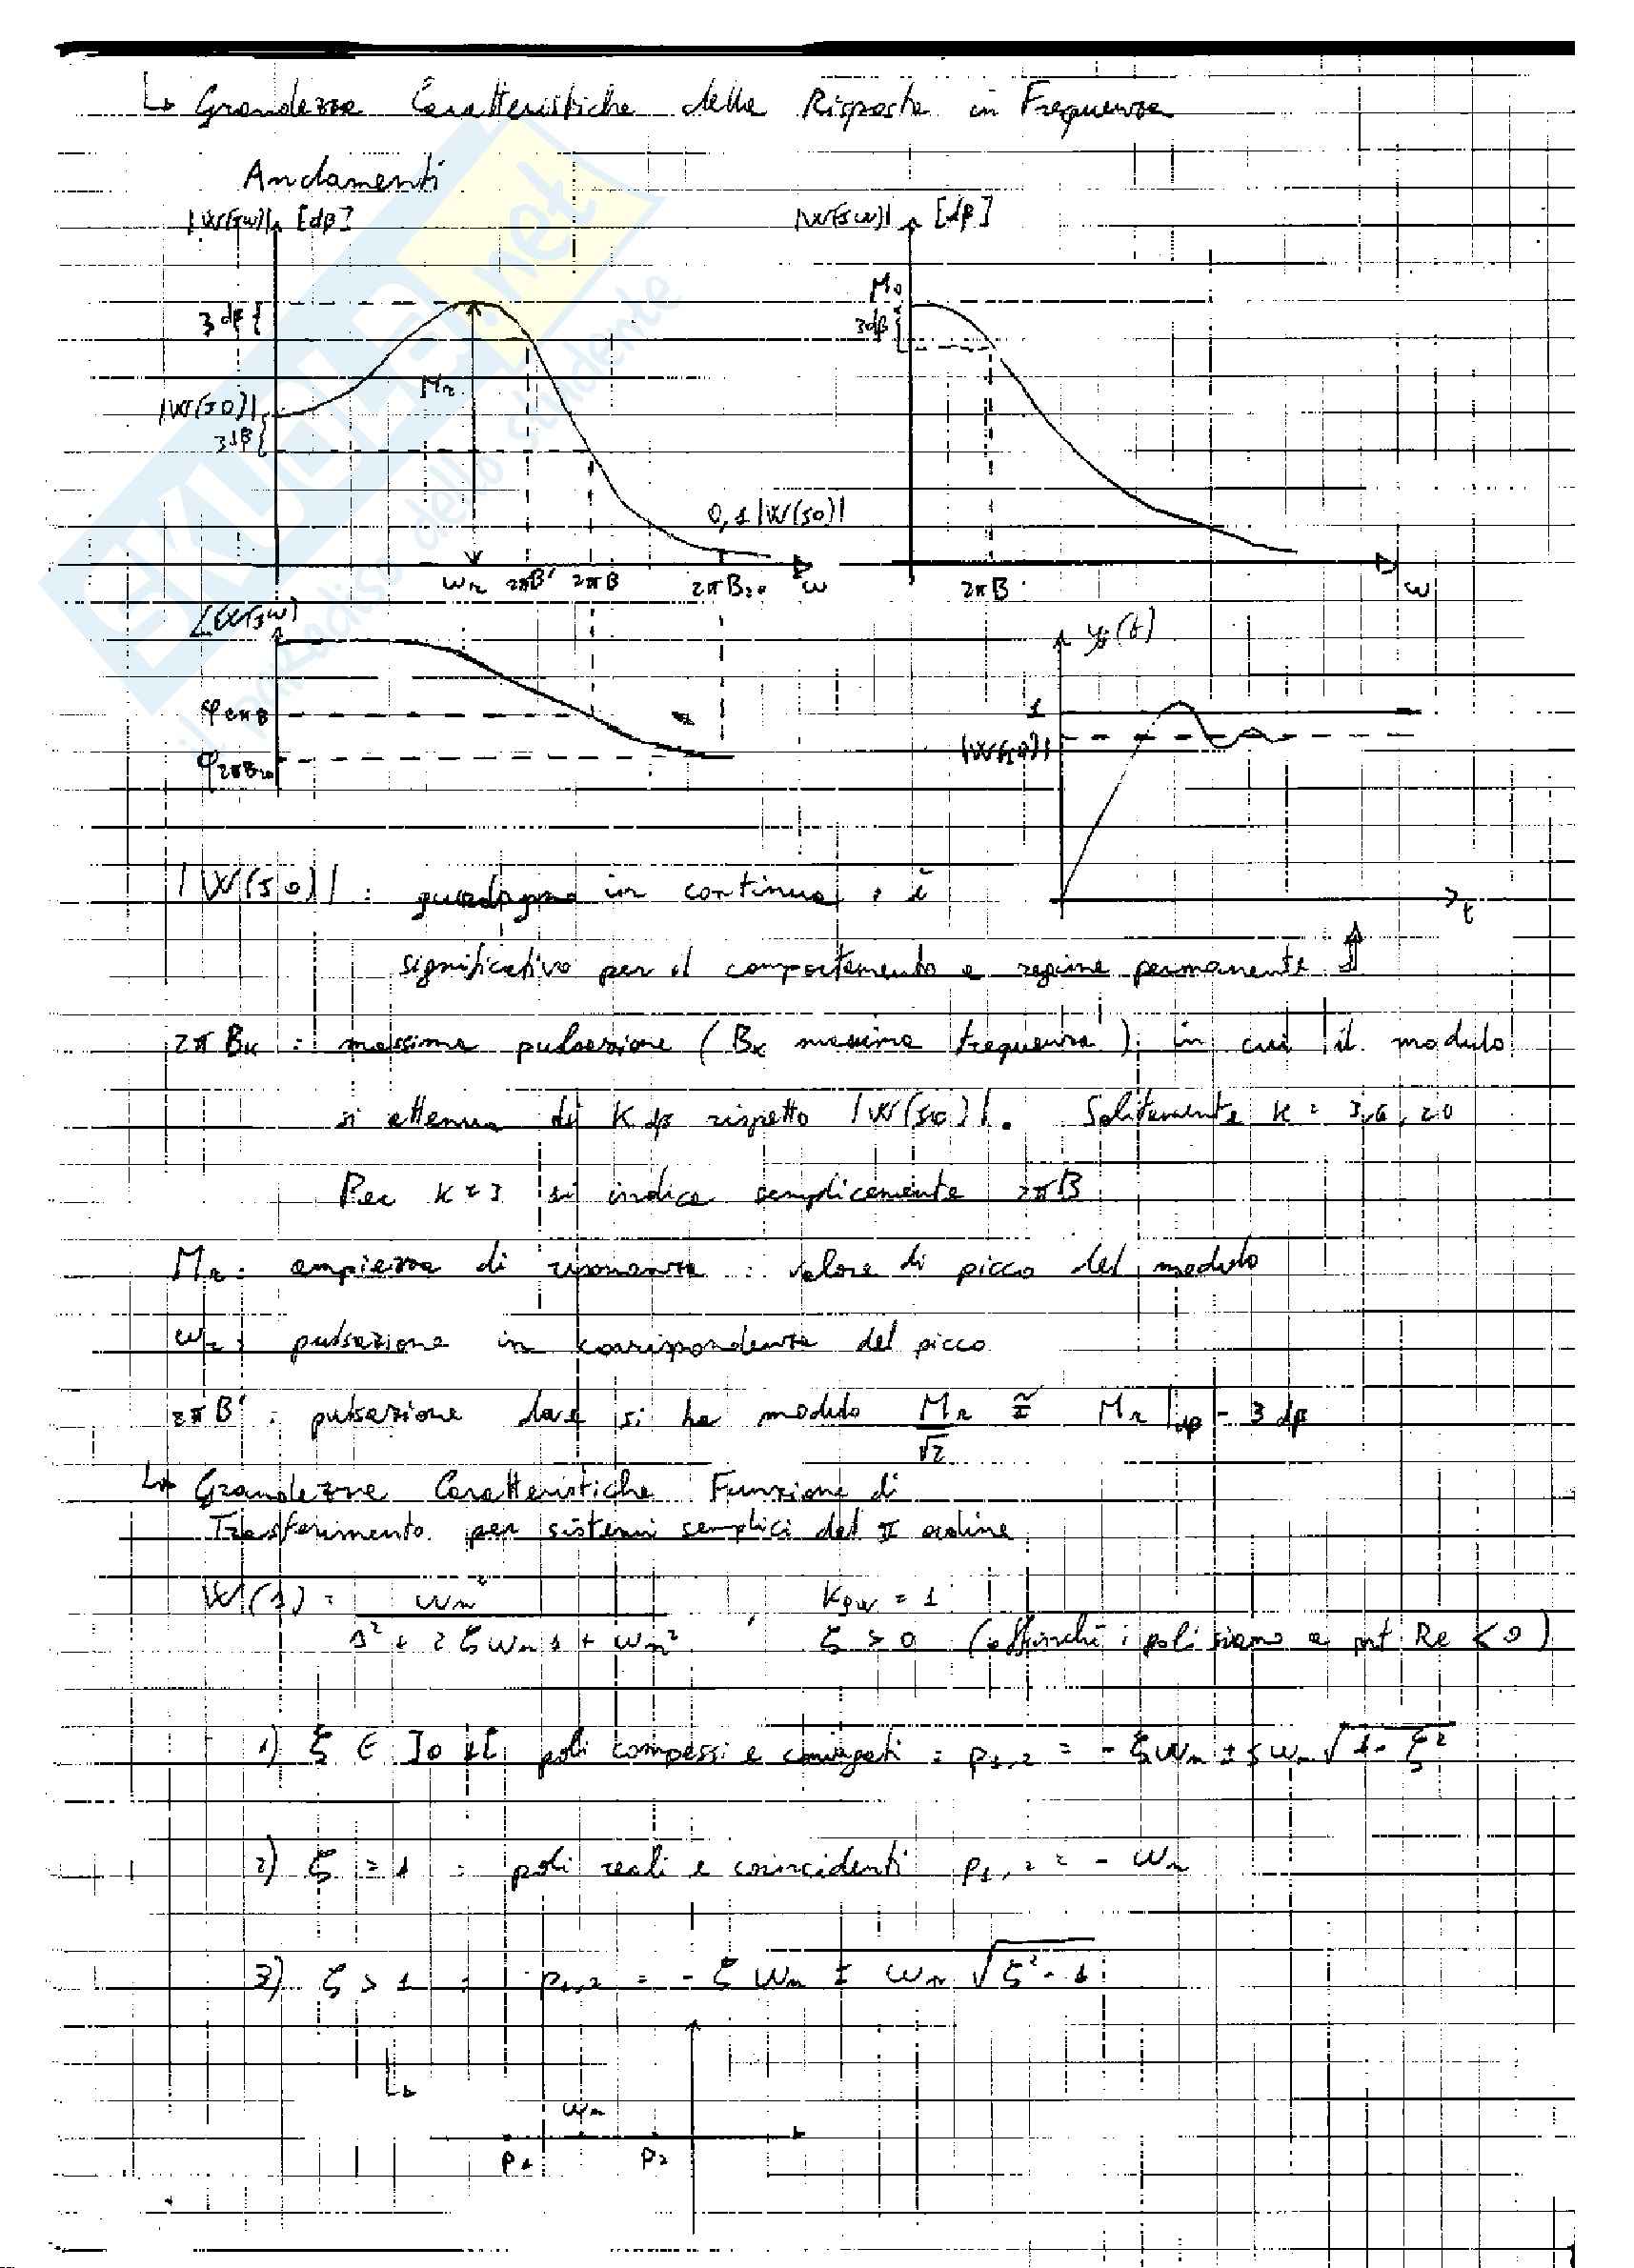 ↳ Grandezze Caratteristiche della Risposta in Frequenza
Andamenti
|W(jω)| [dB]
|W(jω)| [dB]
M₀
3 dB
3 dB
Mr
|W(j0)|
3dB
0,1 |W(j0)|
ωr 2πB' 2πB 2πB₂₀ ω
2πB ω
∠W(jω)
y(t)
φ2πB
1
|W(j0)|
φ2πB₂₀
t
|W(j0)| : guadagno in continua, è
significativo per il comportamento a regime permanente
2π Bk : massima pulsazione (Bk massima frequenza) in cui il modulo
si attenua di K dB rispetto |W(j0)|. Solitamente k = 3,6,20
Per k = 3 si indica semplicemente 2πB
Mr : ampiezza di risonanza : valore di picco del modulo
ωr : pulsazione in corrispondenza del picco
2πB' : pulsazione dove si ha modulo Mr/√2 ≅ Mr|dB - 3 dB
↳ Grandezze Caratteristiche Funzione di
Trasferimento per sistemi semplici del II ordine
W(s) = ωn² / (s² + 2 ξ ωn s + ωn²) , Kgw = 1
ξ > 0 (affinché i poli siano a prt Re < 0)
1) ξ ∈ ]0,1[ poli compessi e coniugati : p1,2 = - ξωn ± jωn √1 - ξ²
2) ξ = 1 : poli reali e coincidenti p1,2 = - ωn
3) ξ > 1 : p1,2 = - ξ ωn ± ωn √ξ² - 1
↳
ωn
p1 p2
SKUOLA.net
il paradiso dello studente